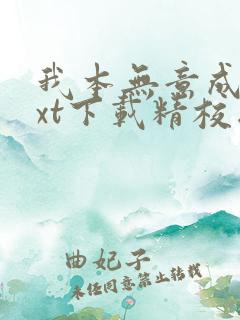 我本無意成
xt下載精校
曲妃子
未任同意禁止转载